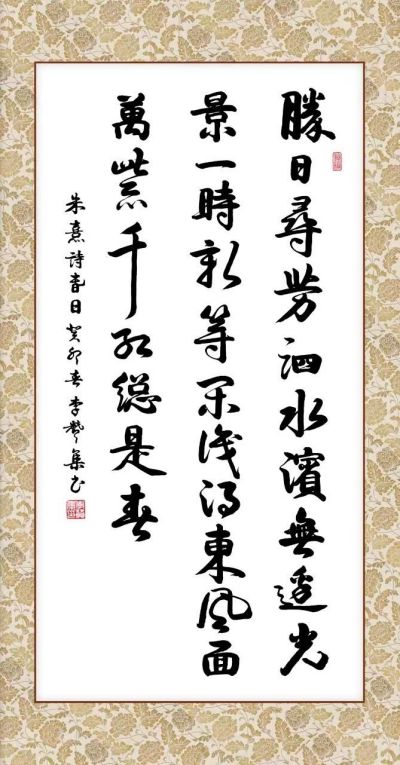 勝日尋芳泗水濱無邊光
景一時新等閑識得東風面
萬紫千紅總是春
朱熹詩春日癸卯春李集